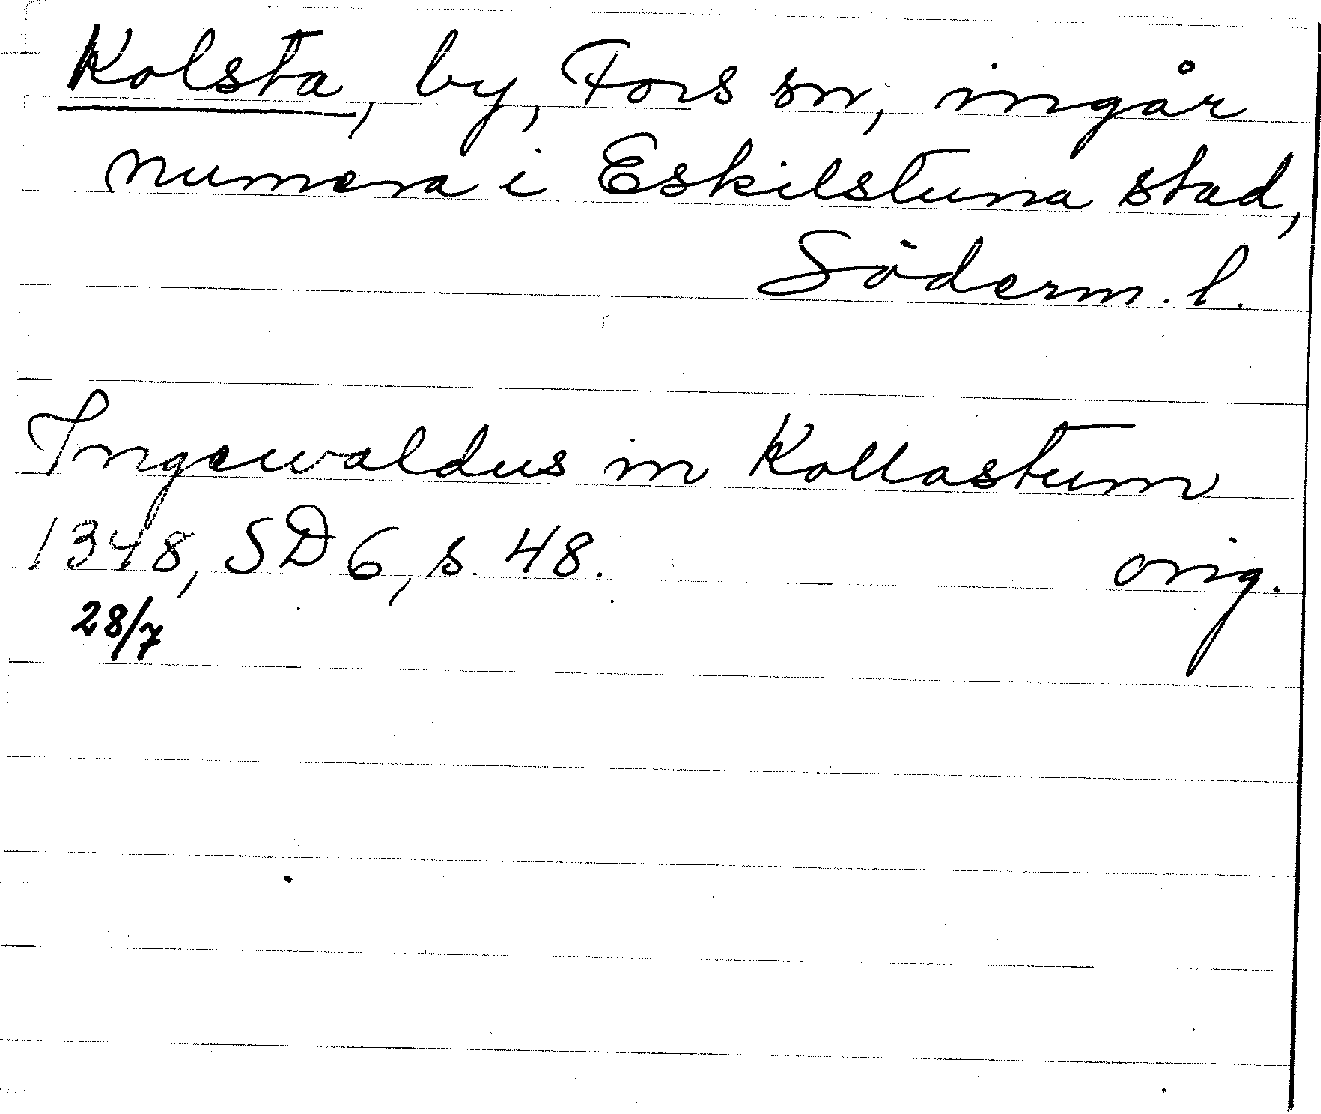 Kolsta, by, Fors sn, ingår
numera i Eskilstuna stad,
Söderm. l.
Ingewaldus in Kollastum
1348, SD 6, s. 48. orig.
28/7